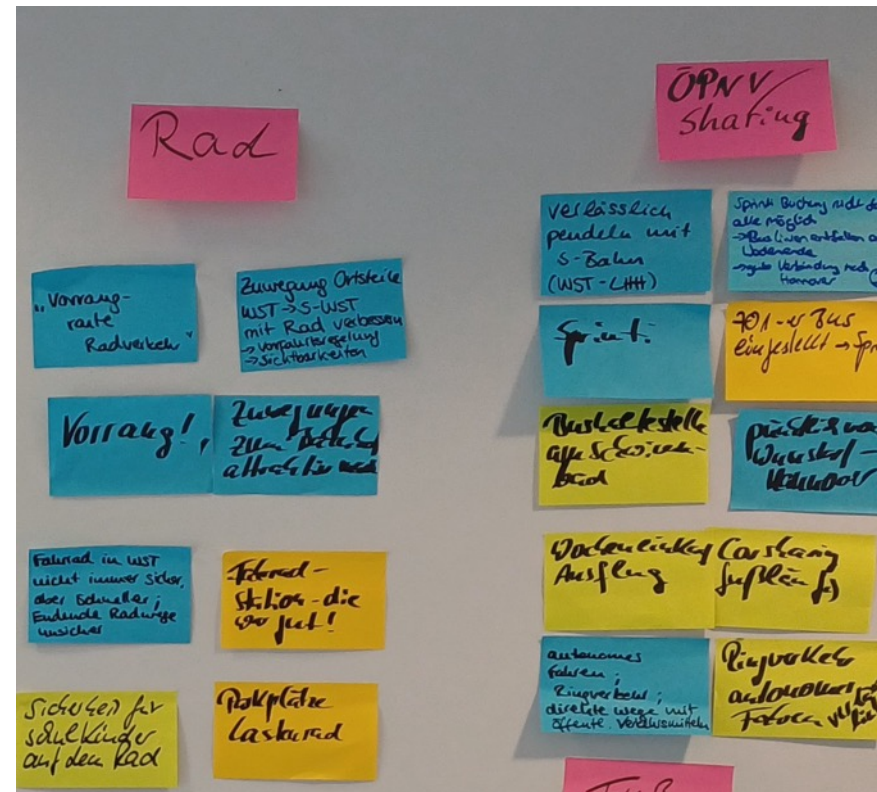 Rad
„Vorrang-
route
Radverkehr"
Zuwegung Ortsteile
WST → S-WST
mit Rad verbessern
→ Vorfahrtsregelung
→ Sichtbarkeiten
Vorrang!,
Zuwegungen
zum Bahnhof
attraktiv
Fahrrad in WST
nicht immer sicher,
aber schneller;
Endende Radwege
unsicher
Fahrrad-
Station - die
wo gut!
Sicherheit für
Schulkinder
auf dem Rad
Parkplätze
Lastenrad
ÖPNV/
Sharing
verlässlich
pendeln mit
S-Bahn
(WST - LHH)
Sprinti Buchung nicht
alle möglich
→ Buslinien entfallen
Wochenende
→ gute Verbindung nach
Hannover
Sprinti
701-er Bus
eingestellt → Spr
Bushaltestelle
am Schwimm-
bad
pünktlich von
Wunstorf -
Hannover
Wocheneinkauf
Ausflug
Carsharing
fußläuf.
autonomes
Fahren;
Ringverkehr;
direkte Wege mit
öffentl. Verkehrsmitteln
Ringverkehr
autonomes
Fahren